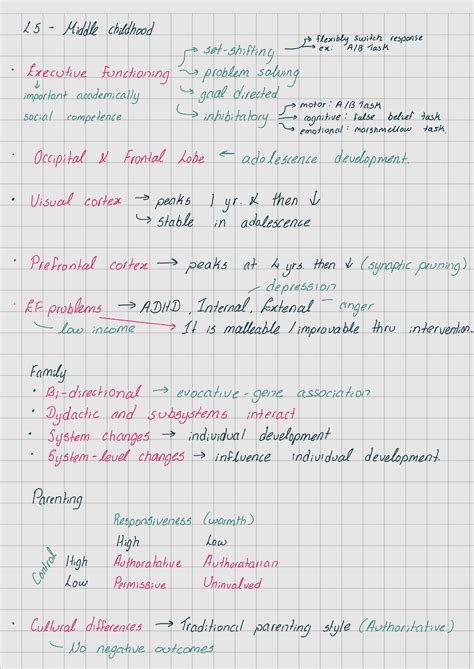 L5 - Middle childhood
flexibly switch response
set-shifting ex: A/B Task
• Executive functioning → problem solving
important academically goal directed motor: A/B Task
social competence inhibitatory cognitive: false belief task
emotional: marshmellow task
• Occipital & Frontal Lobe ← adolescence development.
• Visual cortex → peaks 1 yr. & then ↓
↳ stable in adolescence
• Prefrontal cortex → peaks at 4 yrs. then ↓ (synaptic pruning)
depression
• EF problems → ADHD, Internal, Extenal - anger
low income It is malleable / improvable thru intervention.
Family
• Bi-directional → evocative-gene association
• Dydactic and subsystems interact
• System changes → individual development
• System-level changes → influence individual development.
Parenting
Responsiveness (warmth)
High Low
Control High Authoratative Authoratarian
Low Permissive Uninvalved
• Cultural differences → Traditional parenting style (Authoritative)
No negative outcomes